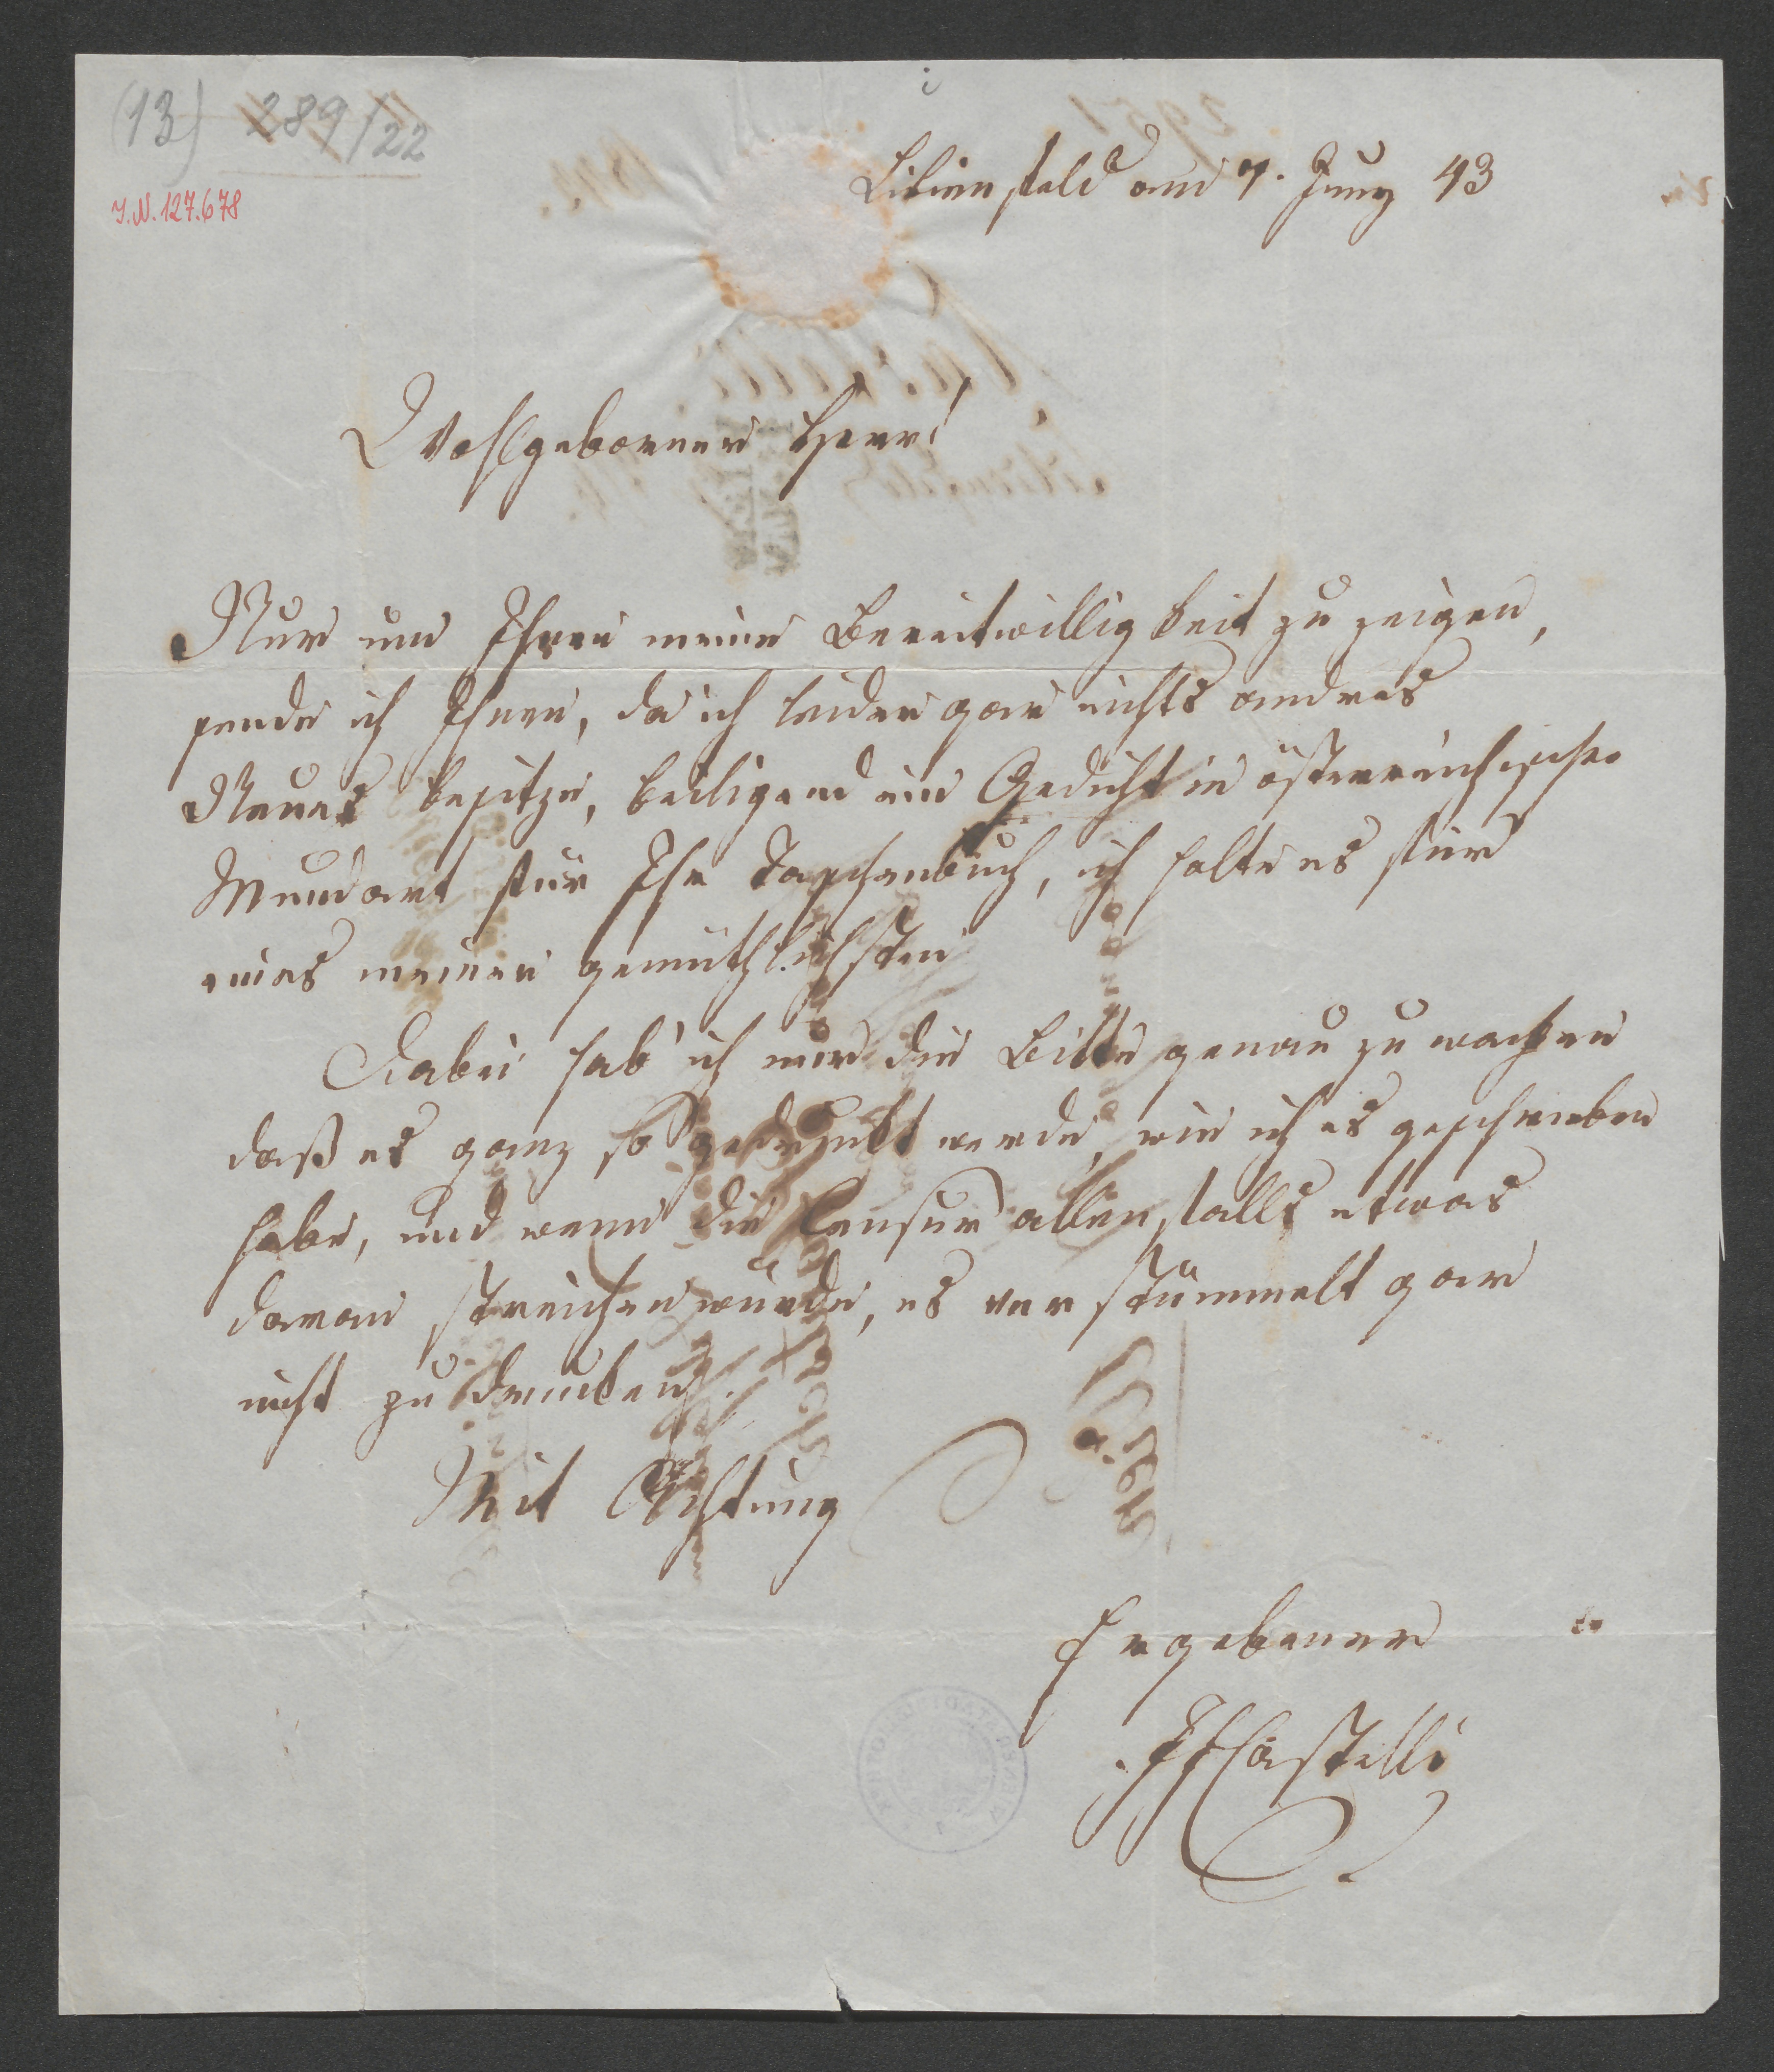 (13) 289/22
I.N. 127.678
Lilienfeld am 7. Juny 43
Wohlgeborner Herr!
Nur um Ihnen meine Bereitwilligkeit zu zeigen,
sende ich Ihnen, da ich leider gar nichts andres
Neues besitze, beiligend ein Gedicht in österreichischer
Mundart für Ihr Taschenbuch, ich halte es für
eines meiner gemüthlichsten
Dabei hab' ich nur die Bitte genau zu wachen
daß es ganz so gedruckt werde, wie ich es geschrieben
habe, und wenn die Censur allenfalls etwas
daran streichen würde, es verstümmelt gar
nicht zu drucken.
Mit Achtung
Ergebener
IFCastelli